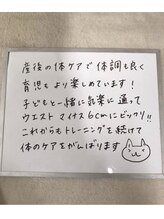 産後の体ケアで体調も良く
育児もより楽しめています!
子どもと一緒に気楽に通って
ウエスト マイナス6cmにビックリ!!
これからもトレーニングを続けて
体のケアをがんばります